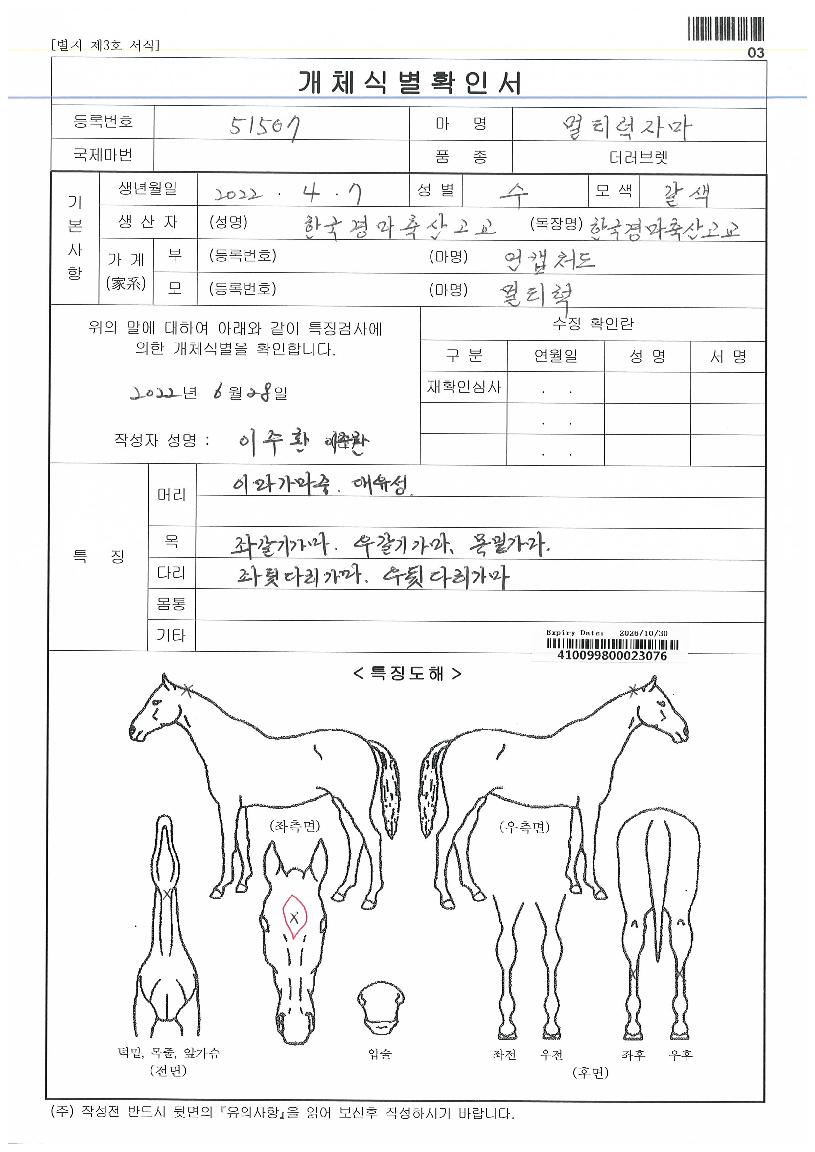 [별지 제3호 서식]
03
개체식별확인서
등록번호 51507 마 명 멀티럭자마
국제마번 품 종 더러브렛
기본사항
생년월일 2022 . 4 . 7 성 별 수 모 색 갈색
생 산 자 (성명) 한국경마축산고교 (목장명) 한국경마축산고교
가 계 (家系) 부 (등록번호) (마명) 언캡처드
모 (등록번호) (마명) 멀티럭
위의 말에 대하여 아래와 같이 특징검사에
의한 개체식별을 확인합니다.
2022년 6월 28일
작성자 성명 : 이주환 이주환
수정 확인란
구 분 연월일 성 명 서 명
재확인심사 . .
. .
. .
특 징
머리 이마가마중. 대유성.
목 좌갈기가마. 우갈기가마. 목밑가마.
다리 좌뒷다리가마. 우뒷다리가마
몸통
기타
Expiry Date: 2026/10/30
410099800023076
<특징도해>
(좌측면) (우측면)
턱밑, 목줄, 앞가슴
(전면)
입술
좌전 우전 좌후 우후
(후면)
(주) 작성전 반드시 뒷면의 『유의사항』을 읽어 보신후 작성하시기 바랍니다.